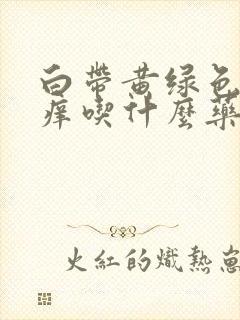 白帶黃绿色
痒喫什麼藥
火紅的熾熱崽